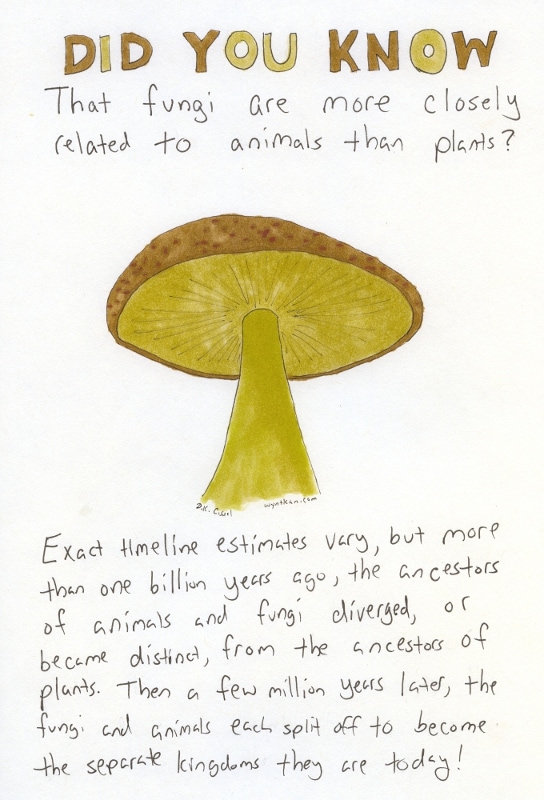 DID YOU KNOW
That fungi are more closely
related to animals than plants?
wyntkan.com
Exact timeline estimates vary, but more
than one billion years ago, the ancestors
of animals and fungi diverged, or
became distinct, from the ancestors of
plants. Then a few million years later, the
fungi and animals each split off to become
the separate kingdoms they are today!